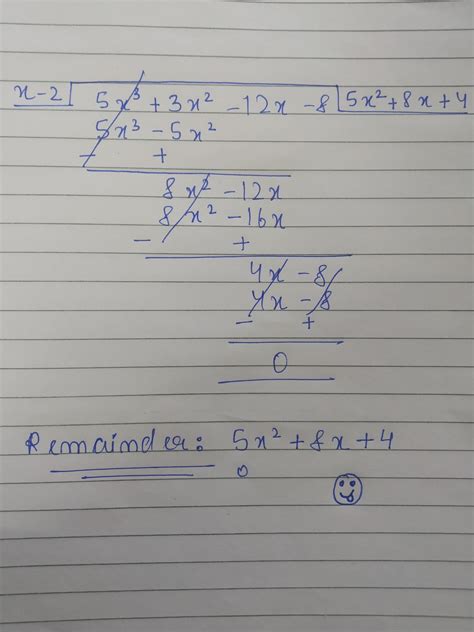 x-2 5x³ + 3x² - 12x - 8 5x² + 8x + 4
5x³ - 5x²
- +
8x² - 12x
8x² - 16x
- +
4x - 8
4x - 8
- +
0
Remainder: 5x² + 8x + 4
0